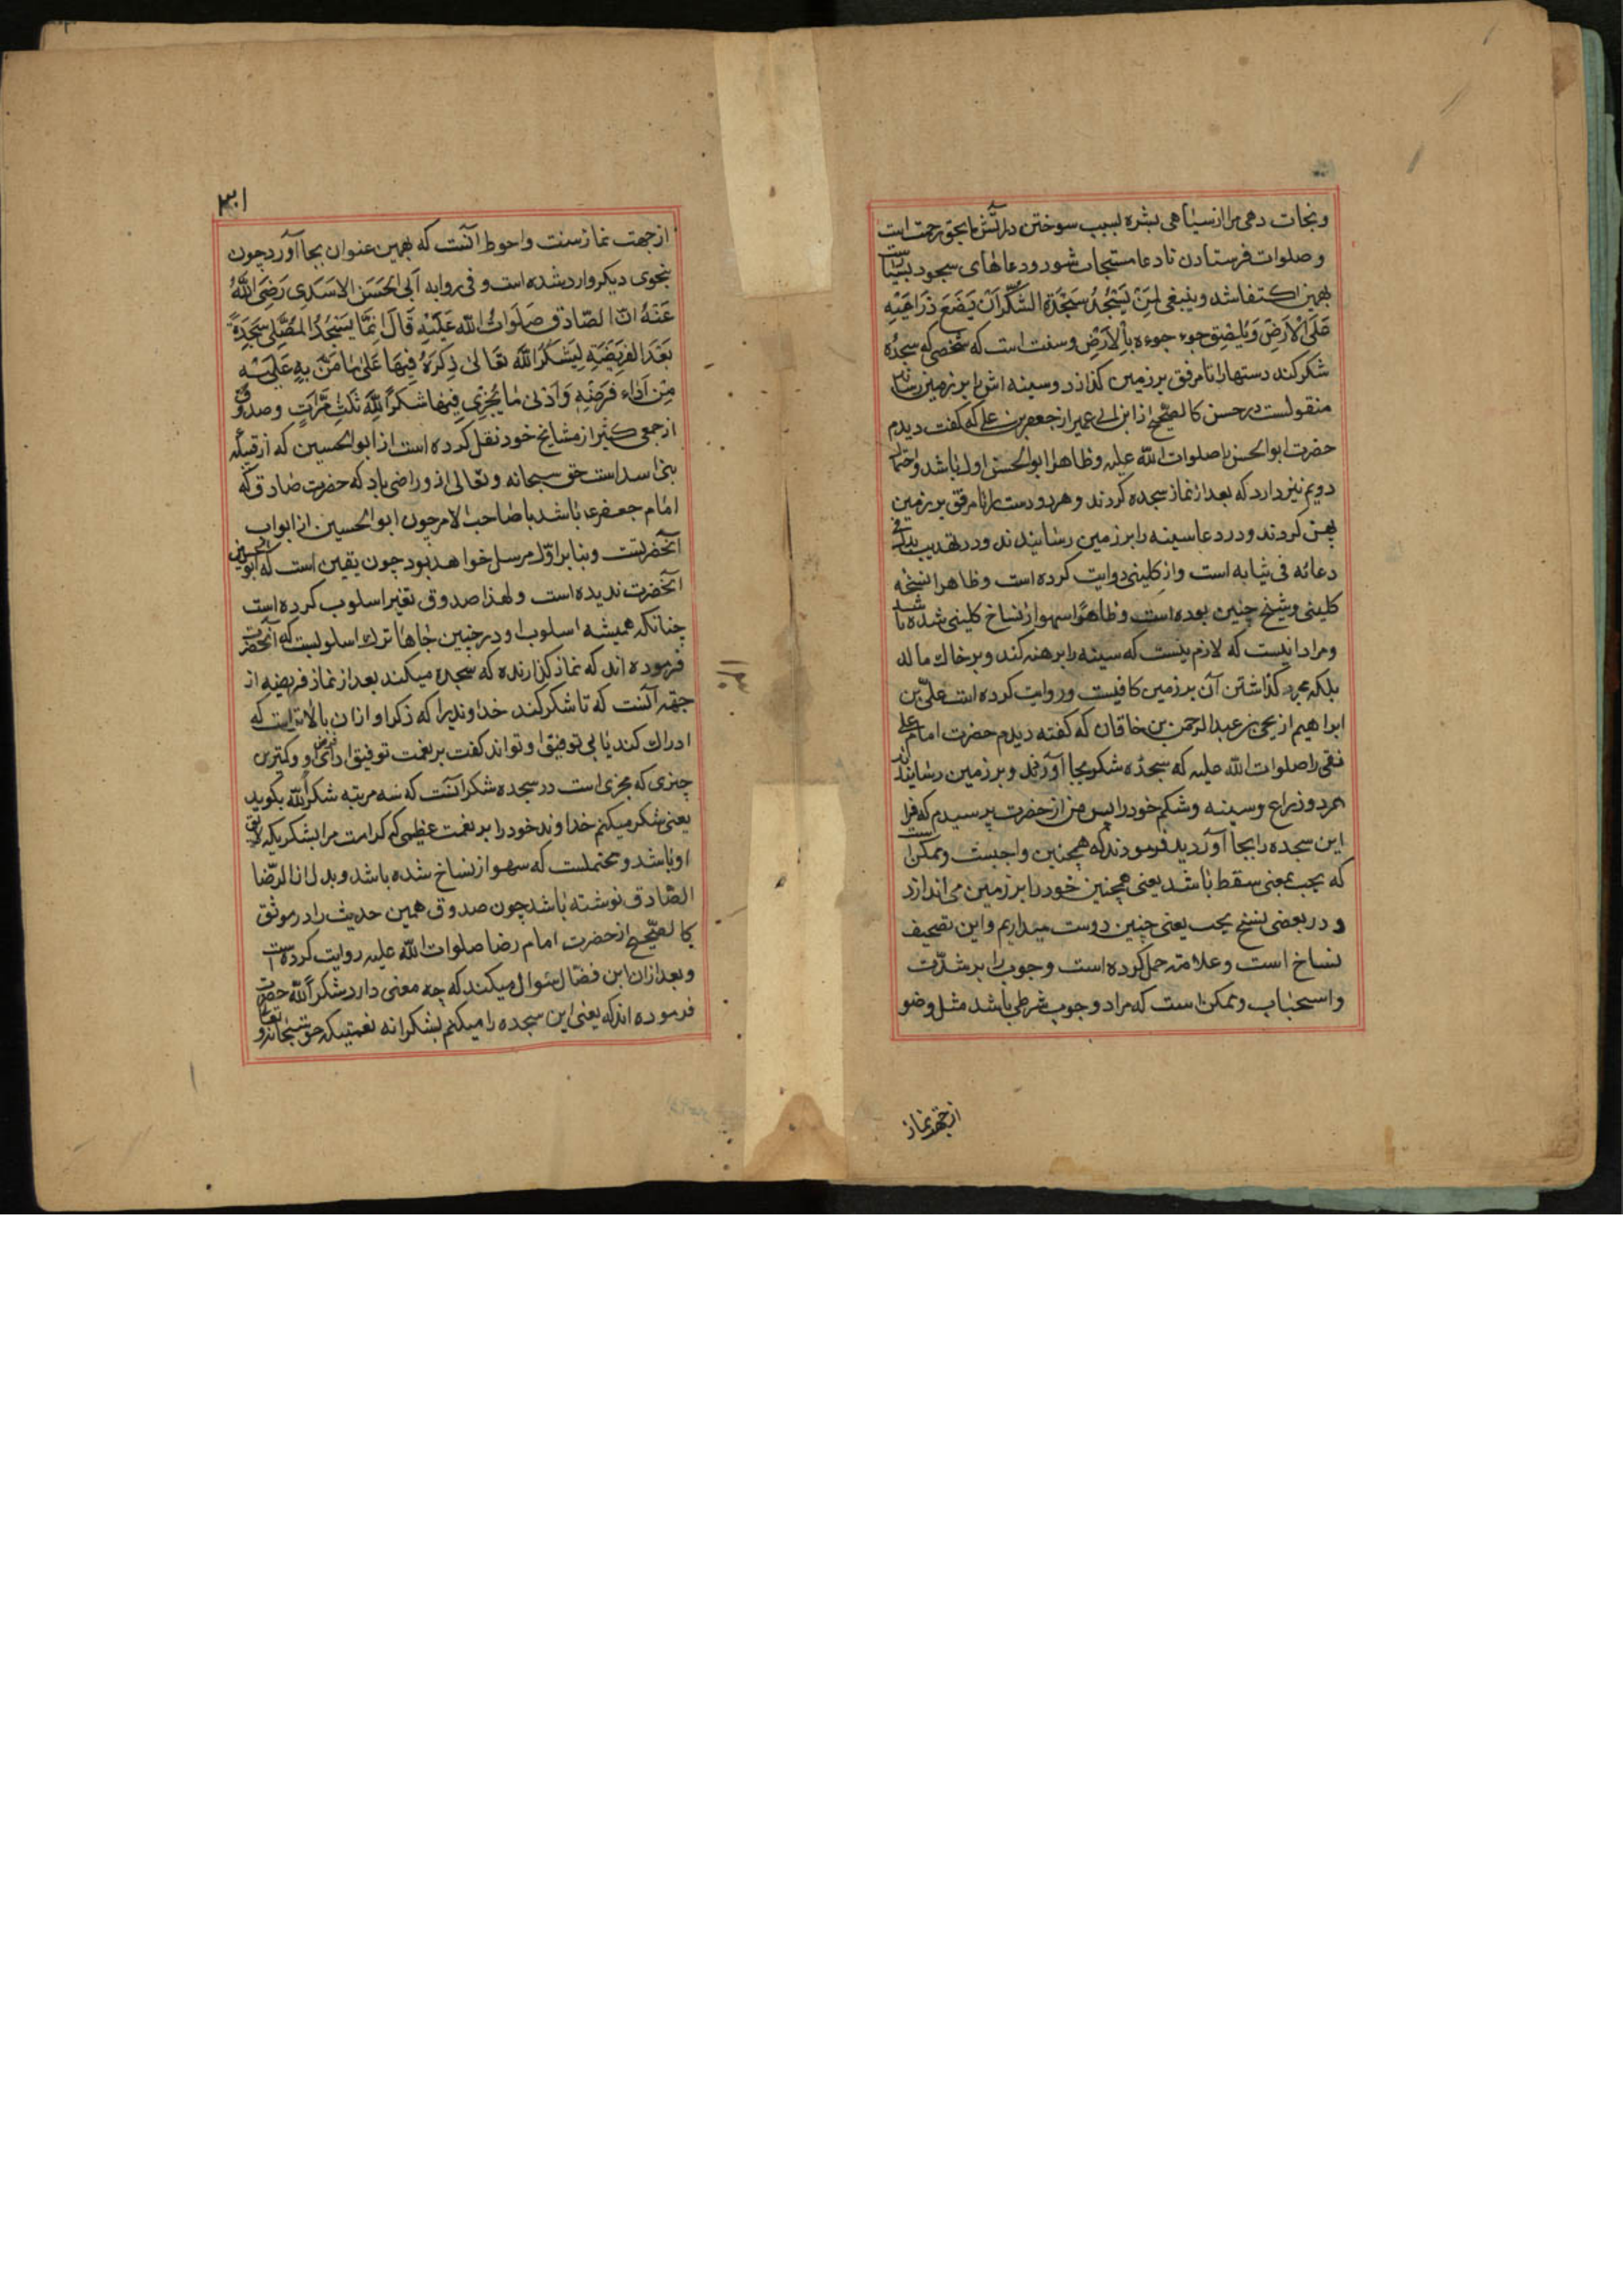 و نجات دهی مرا از سیاهی بشره بسبب سوختن در آتش بحق رحمت است
و صلوات فرستادن تا دعا مستجاب شود و دعاهای سجود بسیار است
بهمین اکتفا شد و ینبغی لِمَنْ یَسْجُدُ سَجْدَةَ الشُّکْرِ اَنْ یَضَعَ ذِرَاعَیْهِ
عَلَی الْاَرْضِ وَ یُلْصِقَ جوءجوءه بِالْاَرْضِ و سنت است که شخصی که سجده
شکر کند دستها را تا مرفق بر زمین گذارد و سینه اش را بر زمین رساند
منقولست در حسن کالصحیح از ابن ابی عمیر از جعفر بن علی که گفت دیدم
حضرت ابو الحسن را صلوات الله علیه و ظاهرا ابو الحسن اول باشد و احتمال
دویم نیز دارد که بعد از نماز سجده کردند و هر دو دست را تا مرفق بر زمین
پهن کردند و در دعا سینه را بر زمین رسانیدند و در تهذیب بدل فی
دعائه فی ثیابه است و از کلینی روایت کرده است و ظاهرا نسخه
کلینی و شیخ چنین بوده است و ظاهرًا سهو از نساخ کلینی شده باشد
و مراد اینست که لازم نیست که سینه را برهنه کند و بر خاک مالد
بلکه مجرد گذاشتن آن بر زمین کافیست و روایت کرده است علی بن
ابراهیم از یحیی بن عبد الرحمن بن خاقان که گفته دیدم حضرت امام علی
نقی را صلوات الله علیه که سجده شکر بجا آوردند و بر زمین رسانیدند
هر دو ذراع و سینه و شکم خود را پس من از حضرت پرسیدم که چرا
این سجده را بجا آوردید فرمودند که همچنین واجبست و ممکن است
که یجب بمعنی سقط باشد یعنی همچنین خود را بر زمین می اندازد
و در بعضی نسخ یحب یعنی چنین دوست میداریم و این تصحیف
نساخ است و علامه حمل کرده است وجوب را بر شدّت
و استحباب و ممکن است که مراد وجوب شرطی باشد مثل وضو
از جهة نماز
۳۰۱
از جهت نماز سنت و احوط آنست که بهمین عنوان بجا آورد چون
بنحوی دیکر وارد شده است و فی روایه اَبِی الحَسَن الاَسَدِی رَضِیَ اللّٰهُ
عَنْهُ انّ الصّادق صَلَوَاتُ اللّٰه عَلَیْهِ قَالَ اِنَّمَا یَسْجُدُ المُصَلِّی سَجْدَةً
بَعْدَ الفَرِیْضَةِ لِیَشْکُرَ اللّٰهَ تَعَالٰی ذِکرَهُ فِیهَا عَلٰی مَا مَنَّ بِهِ عَلَیْهِ
مِن اَدَاء فَرْضِهِ وَ اَدْنٰی مٰا یُجْزِی فِیهَا شکْراً لِلّٰهِ ثَلٰثَ مَرَّاتٍ و صدوق
از جمعی کثیر از مشایخ خود نقل کرده است از ابو الحسین که از قبیله
بنی اسد است حق سبحانه و تعالی از و راضی باد که حضرت صادق که
امام جعفر ع باشد یا صاحب الامر چون ابو الحسین از ابواب
آنحضرتست و بنا بر اوّل مرسل خواهد بود چون یقین است که ابو الحسین
آنحضرت ندیده است و لهذا صدوق تغیر اسلوب کرده است
چنانکه همیشه اسلوب او در چنین جاها ترک اسلوبست که آنحضرت
فرموده اند که نماز گذارنده که سجده میکند بعد از نماز فریضه از
جهة آنست که تا شکر کند خداوندیرا که ذکر او از ان بالاتر است که
ادراک کند یا بی توفیق او تواند گفت بر نعمت توفیق ادای فرض او و کمترین
چیزی که مجزی است در سجده شکر آنست که سه مرتبه شکراً لِلّٰه بگوید
یعنی شکر میکنم خداوند خود را بر نعمت عظیمی که کرامت مرا بشکریکه لایق
او باشد و محتملست که سهو از نساخ شده باشد و بدل انّ الرّضا
الصّادق نوشته باشد چون صدوق همین حدیث را در موثق
کالصّحیح از حضرت امام رضا صلوات الله علیه روایت کرده است
و بعد از ان ابن فضّال سئوال میکند که چه معنی دارد شکراً لِلّٰه حضرت
فرموده اند که یعنی این سجده را میکنم بشکرانه نعمتیکه حق سبحانه و تعالی